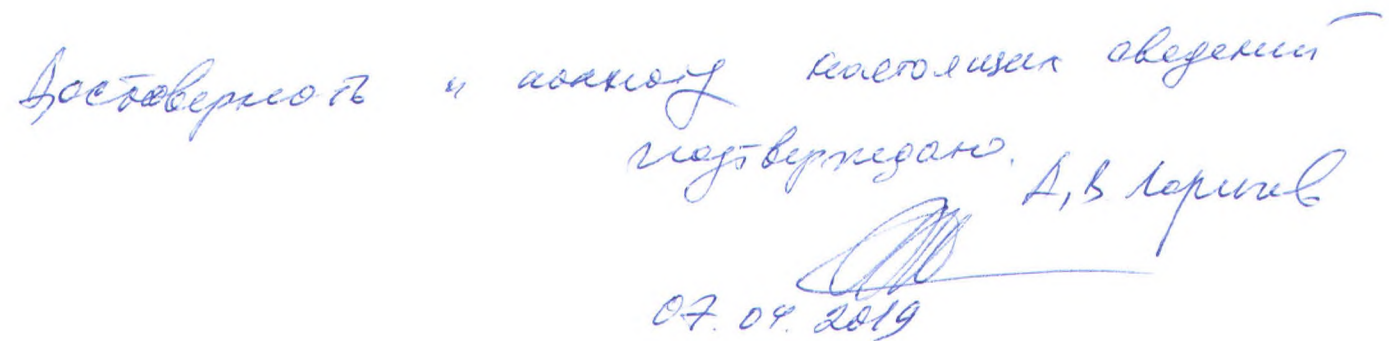 Достоверность и полноту настоящих сведений
подтверждаю.
Д.В. Ларичев
07.04.2019